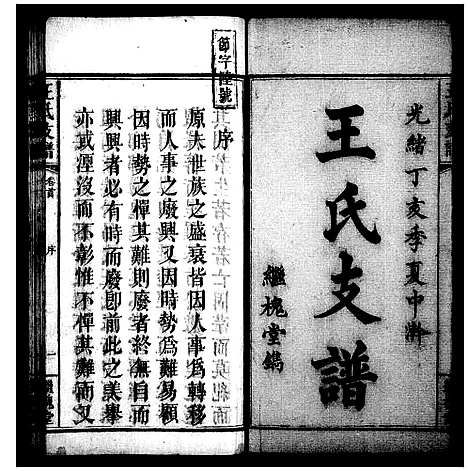 光緒丁亥季夏中澣
王氏支譜
繼槐堂鐫
節字陸號
序
原夫世族之盛衰皆因人事為轉移
而人事之廢興又因時勢為難易顧
因時勢之憚其難則廢者終無自而
興興者必有時而廢卽前此之美舉
亦或湮沒而不彰惟不憚其難而又
王氏支譜
卷首
序
一
繼槐堂